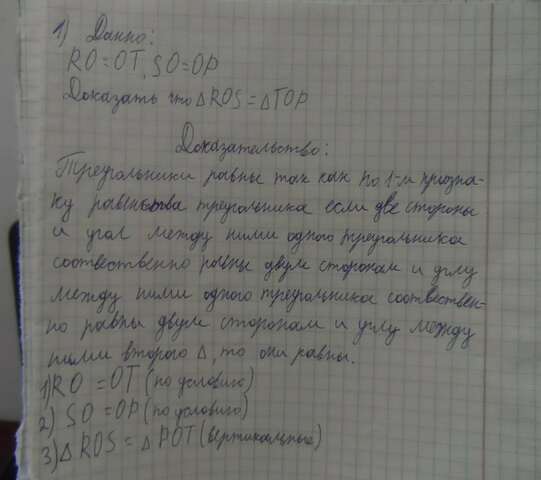 1) Данно:
RO=OT, SO=OP
Доказать что △ROS=△TOP
Доказательство:
Треугольники равны так как по 1-м призна-
ку равенства треугольника если две стороны
и угол между ними одного треугольника
соотвественно равны двум сторонам и углу
между ними одного треугольника соотвествен-
но равны двум сторонам и углу между
ними второго △, то они равны.
1) RO = OT (по условию)
2) SO = OP (по условию)
3) △ ROS = △ POT (вертикальные)